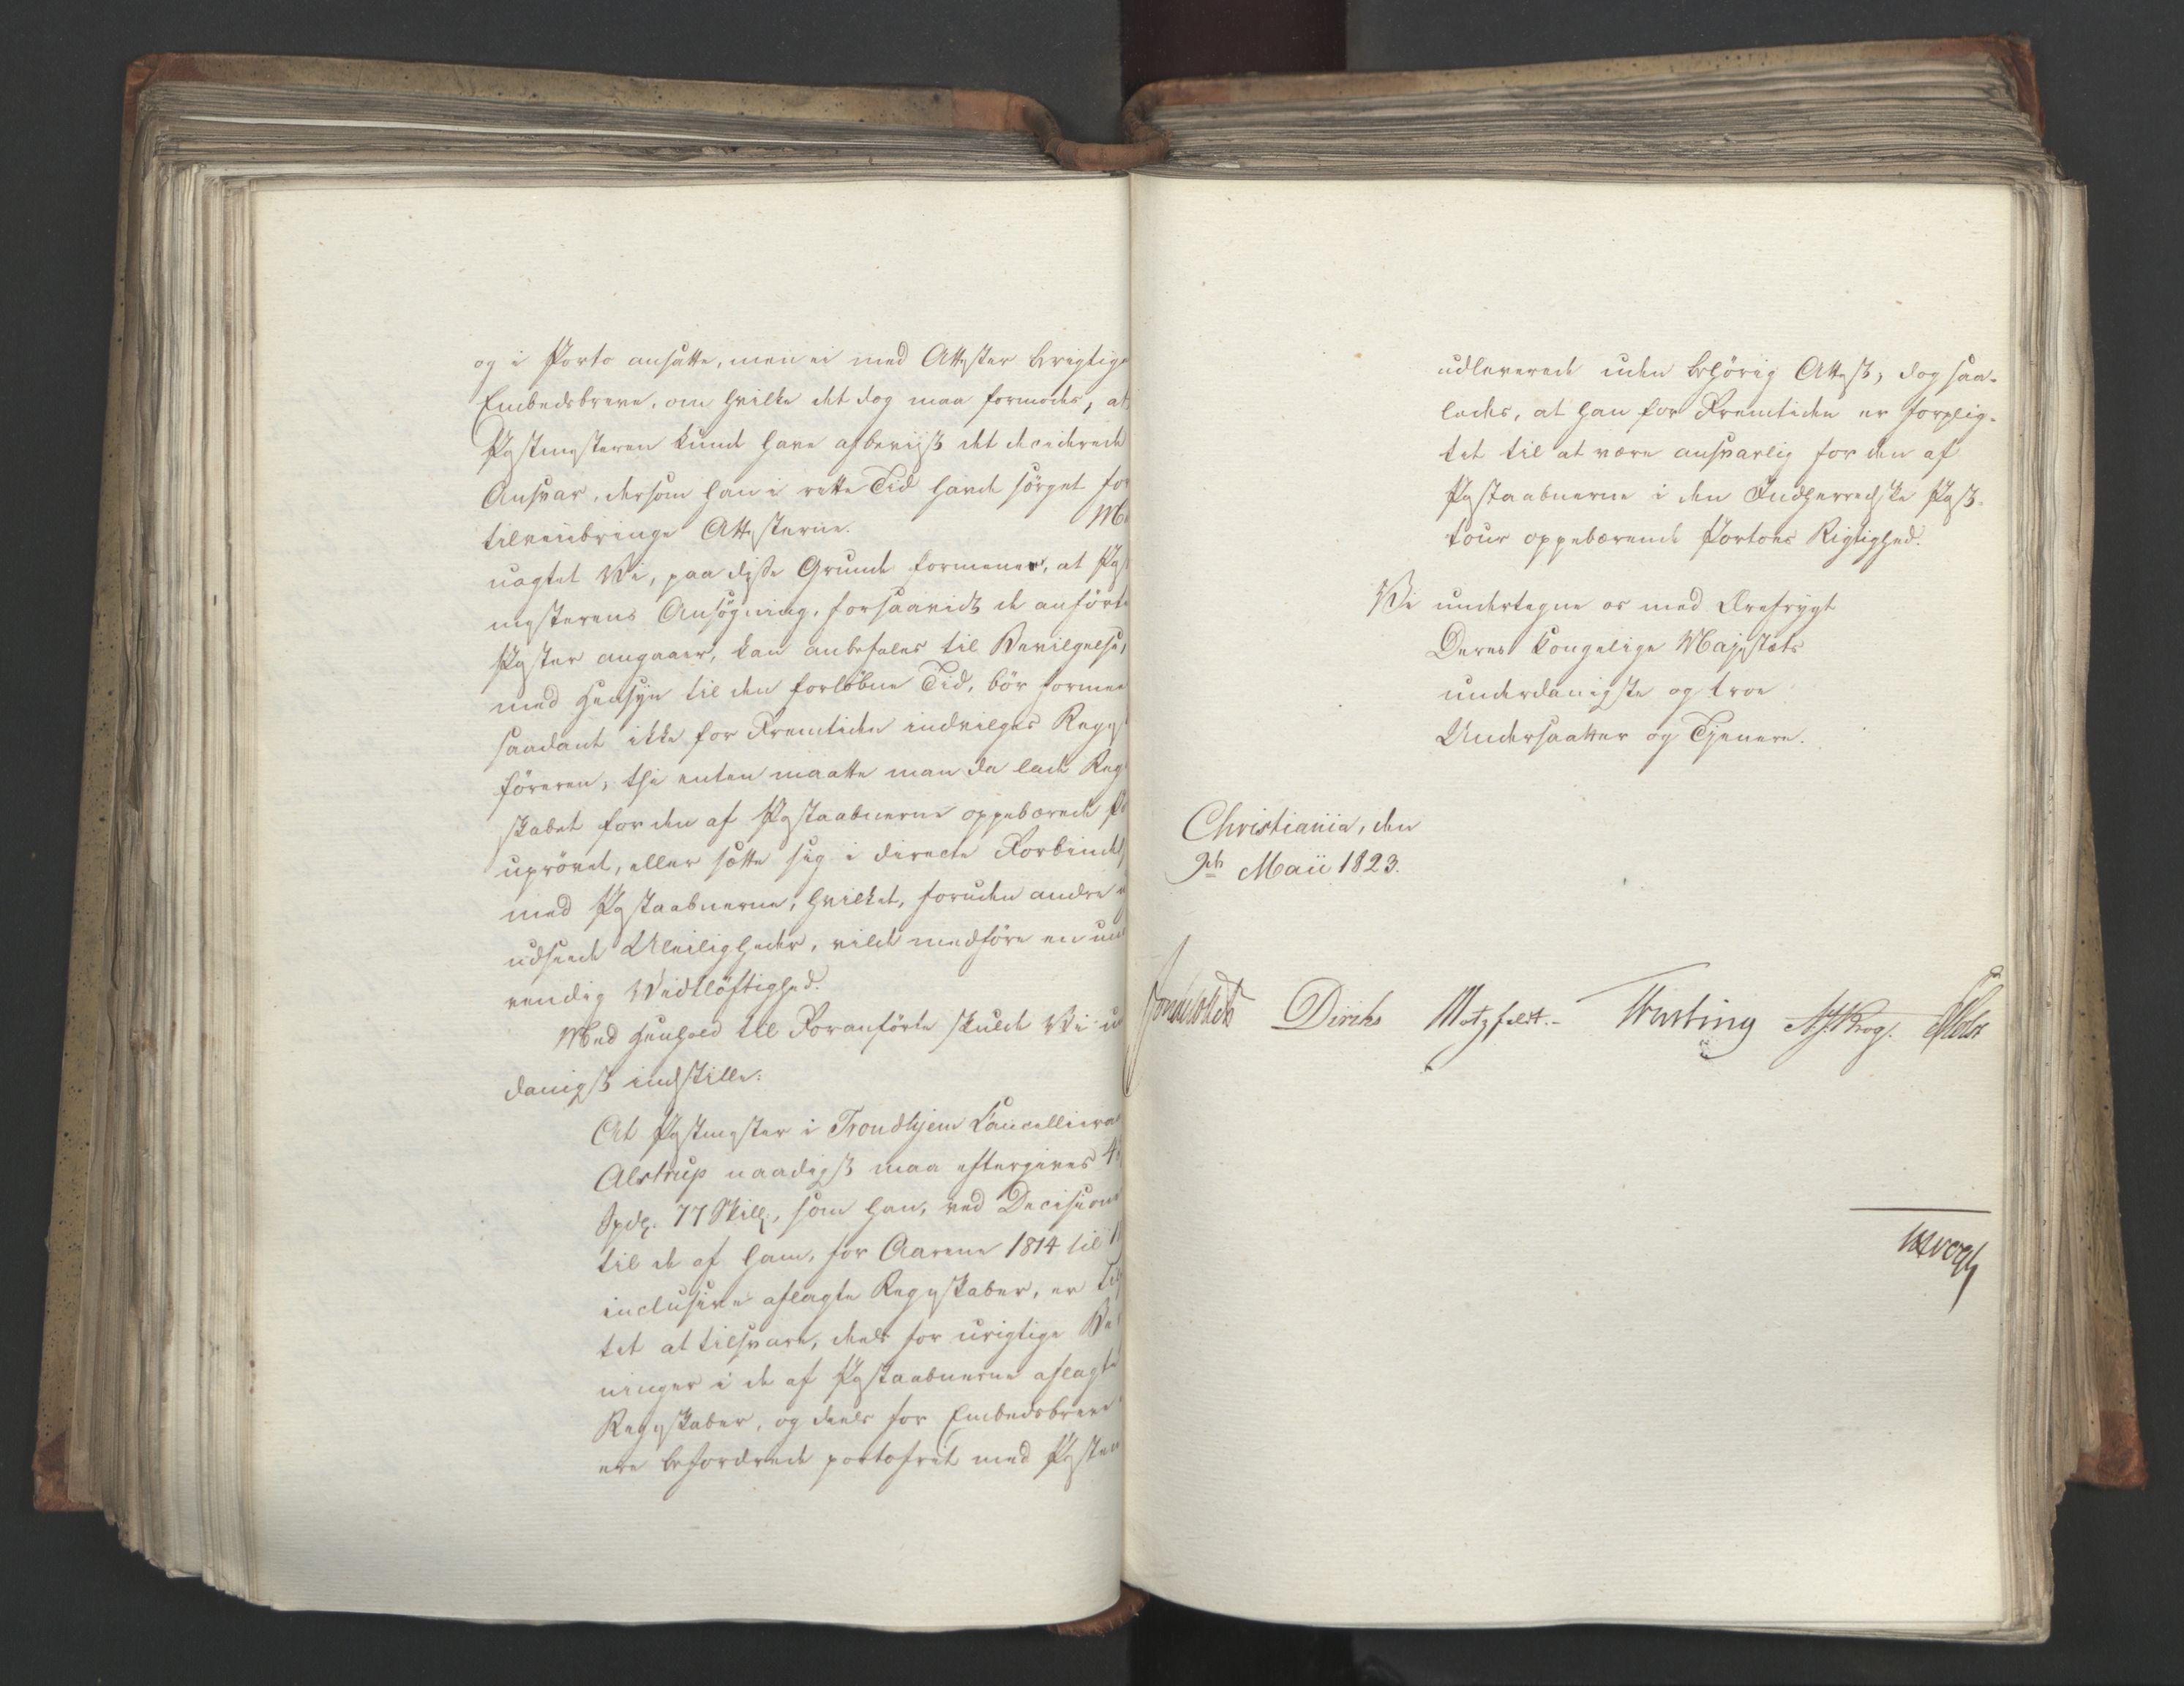 og i Porto ansatte, men ei med Attester berigtige
Embedsbreve, om hvilke det dog maa formodes, at
Postmesteren kunde have afbeviist det deciderede
Ansvar, dersom han i rette Tid havde sörget for
tilveiebringe Attesterne. M
uagtet Vi, paa disse Grunde formener, at Post
mesterens Ansögning, forsaavidt de anförte
Poster angaaer, kan anbefales til Bevilgelse,
med Hensyn til den forlöbne Tid, bör formee
saadant ikke for Fremtiden indvilges Regns
föreren, thi enten maatte man da lade Regn
skabet for den af Postaabnerne oppebærede Po
uprövet, eller sætte sig i directe Forbindels
med Postaabnerne, hvilket, foruden andre
udseede Uleiligheder, vilde medföre en unö
vendig Vidtlöftighed.
Med Henhold til Foranförte skulde Vi un
danigst indstille:
At Postmester i Trondhjem Cancellieraa
Alstrup naadigst maa eftergives 4
Spd. 77 Skill, som han, ved Decisione
til de af ham, for Aarene 1814 til 1
inclusive aflagte Regnskaber, er
tet at tilsvare, deels for urigtige Be
ninger i de af Postaabnerne aflagte
Regnskaber, og deels for Embedsbreve
ere befordrede portofrit med Posten
udleverede uden behörig Attest; dog saa-
ledes, at han for Fremtiden er forplig-
tet til at være ansvarlig for den af
Postaabnerne i den Indherredske Post-
tour oppebærende Portoes Rigtighed.
Vi undertegne os med Ærefrygt
Deres Kongelige Majestæts
underdanigste og troe
Undersaatter og Tjenere.
Christiania, den
9de Maii 1823.
Sommerhielm Diriks Motzfeldt.- Treschow Krog. Holst
JHVogt